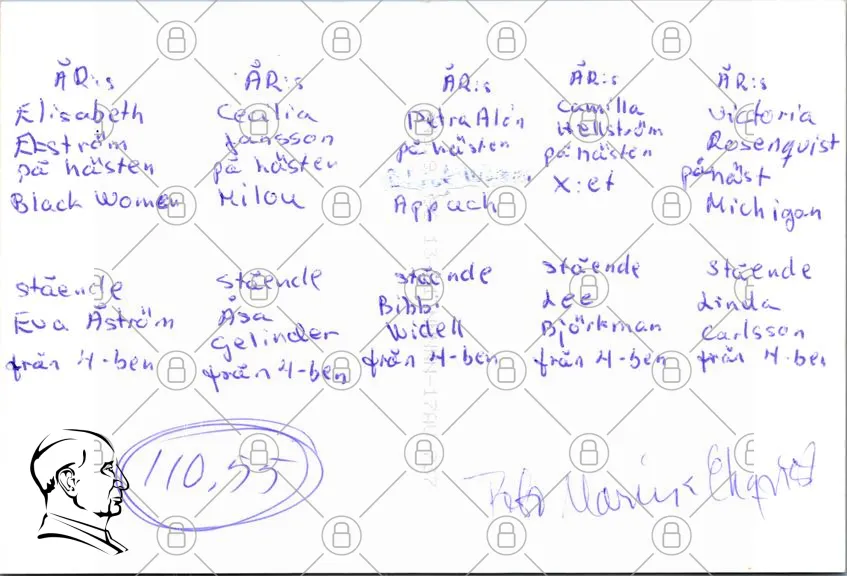 ÅR:s
Elisabeth
Ekström
på hästen
Black Women
ÅR:s
Cecilia
Jansson
på hästen
Milou
ÅR:s
Petra Alén
på hästen
Appach
ÅR:s
Camilla
Hellström
på hästen
X:et
ÅR:s
Victoria
Rosenquist
på häst
Michigan
stående
Eva Åström
från 4-ben
stående
Åsa
Gelinder
från 4-ben
stående
Bibbi
Widell
från 4-ben
stående
Lee
Björkman
från 4-ben
stående
Linda
Carlsson
från 4-ben
110,55
Foto